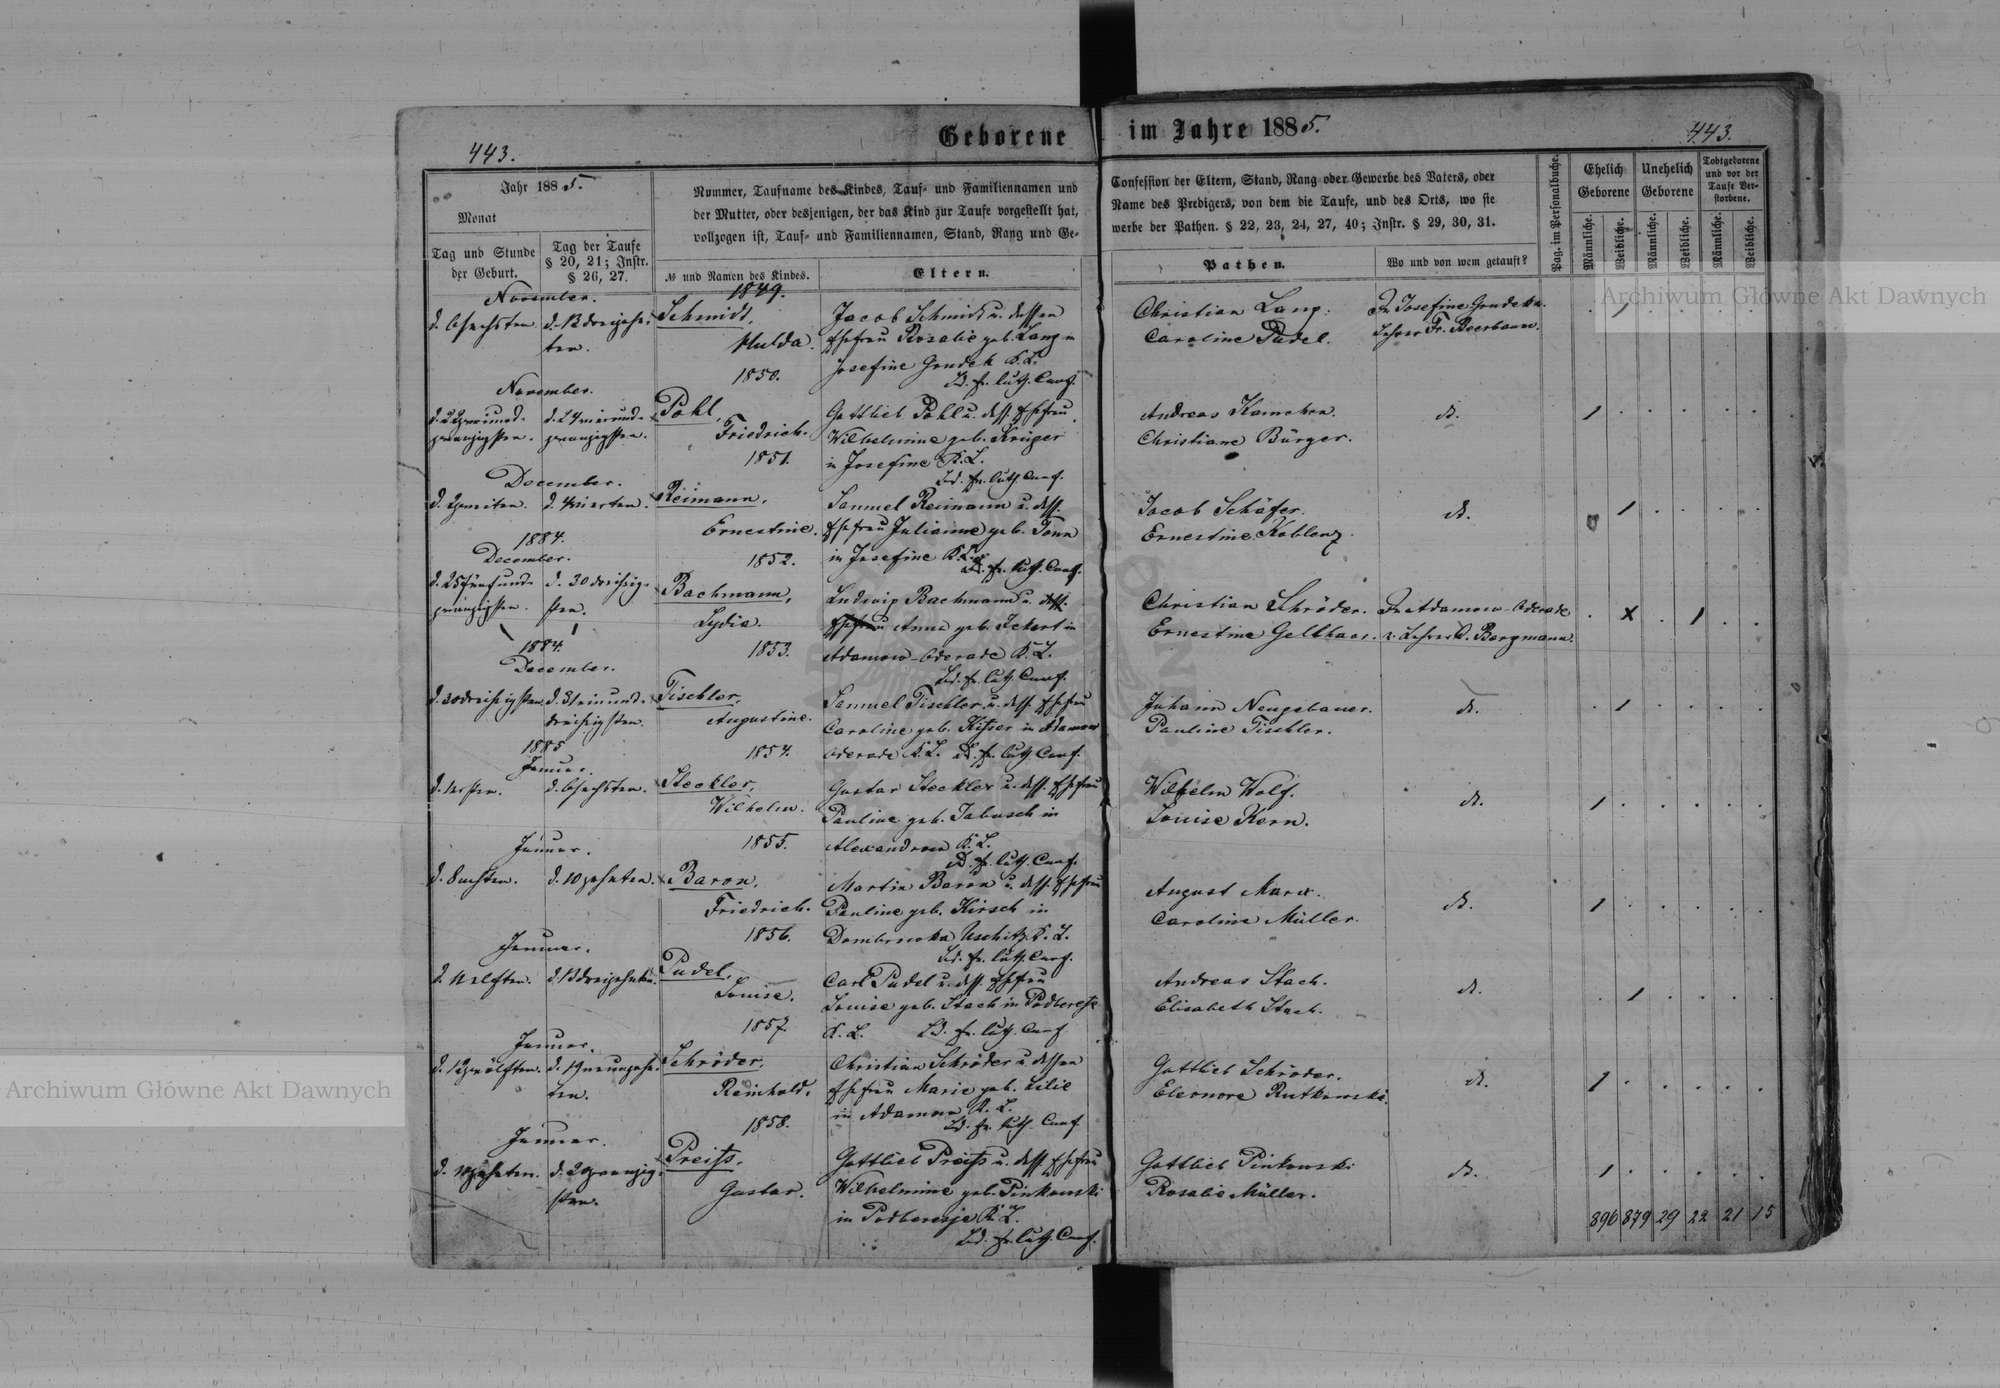 443.
Geborene im Jahre 1885.
443.
Jahr 1885.
Monat
Tag und Stunde der Geburt.
Tag der Taufe § 20, 21; Instr. § 26, 27.
Nummer, Taufname des Kindes, Tauf- und Familiennamen und
der Mutter, oder desjenigen, der das Kind zur Taufe vorgestellt hat,
vollzogen ist, Tauf- und Familiennamen, Stand, Rang und Ge-
№ und Namen des Kindes.
Eltern.
Confession der Eltern, Stand, Rang oder Gewerbe des Vaters, oder
Name des Predigers, von dem die Taufe, und des Orts, wo sie
werbe der Pathen. § 22, 23, 24, 27, 40; Instr. § 29, 30, 31.
Pathen.
Wo und von wem getauft?
Pag. im Personalbuche.
Ehelich Geborene
Unehelich Geborene
Todtgeborene und vor der Taufe Verstorbene.
Männliche.
Weibliche.
Männliche.
Weibliche.
Männliche.
Weibliche.
Archiwum Główne Akt Dawnych
November.
d. 6 sechsten
d. 13 dreizehn-
ten.
1849.
Schmidt,
Hulda.
Jacob Schmidt u. dessen
Ehefrau Rosalie geb. Lang in
Josefine Grudek K. L.
Bd. ev. luth. Conf.
Christian Lang.
Caroline Pudel.
In Josefine Grudek v.
Lehrer Fr. Beerbaum.
November.
d. 22 zweiund-
zwanzigsten.
d. 24 vierund-
zwanzigsten.
1850.
Pohl,
Friedrich.
Gottlieb Pohl u. dess. Ehefrau
Wilhelmine geb. Krüger
in Josefine K. L.
Bd. ev. luth. Conf.
Andreas
Christiane Bürger.
dt.
December.
d. 2 zweiten.
d. 4 vierten.
1851.
Reimann,
Ernestine.
Samuel Reimann u. dess.
Ehefrau Julianne geb. Tonn
in Josefine K. L.
Bd. ev. luth. Conf.
Jacob Schäfer.
Ernestine Koblenz.
dt.
1884.
December.
d. 25 fünfund-
zwanzigsten.
d. 30 dreißig-
sten.
1852.
Bachmann,
Lydia.
Ludwig Bachmann u. dess.
Ehefrau Anna geb. Ickert in
Adamow-Oderade K. L.
Bd. ev. luth. Conf.
Christian Schröder.
Ernestine Gellhaar.
In Adamow-Oderade
v. Lehrer D. Bergmann.
1884.
December.
d. 30 dreißigsten
d. 31 einund-
dreißigsten.
1853.
Tischler,
Augustine.
Samuel Tischler u. dess. Ehefrau
Caroline geb. Kißer in Adamow
Oderade K. L. Bd. ev. luth. Conf.
Johann Neugebauer.
Pauline Tischler.
dt.
1885
Januar.
d. 1 ersten.
d. 6 sechsten.
1854.
Steckler,
Wilhelm.
Gustav Steckler u. dess. Ehefrau
Pauline geb. Jabusch in
Alexandrow K. L.
Bd. ev. luth. Conf.
Wilhelm Wolf.
Louise Kern.
dt.
Januar.
d. 8 achten.
d. 10 zehnten.
1855.
Baron,
Friedrich.
Martin Baron u. dess. Ehefrau
Pauline geb. Kirsch in
Dombrowka Uschitz K. L.
Bd. ev. luth. Conf.
August Marx.
Caroline Müller.
dt.
Januar.
d. 11 elften.
d. 13 dreizehnten.
1856.
Pudel,
Louise.
Carl Pudel u. dess. Ehefrau
Louise geb. Stach in Podberesje
K. L. Bd. ev. luth. Conf
Andreas Stach.
Elisabeth Stach.
dt.
Januar.
d. 12 zwölften.
d. 19 neunzehn-
ten.
1857.
Schröder,
Reinhold.
Christian Schröder u. dessen
Ehefrau Marie geb. Lilie
in Adamow K. L.
Bd. ev. luth. Conf
Gottlieb Schröder.
Eleonore Rutkowski.
dt.
Januar.
d. 10 zehnten.
d. 20 zwanzig-
sten.
1858.
Preiß,
Gustav.
Gottlieb Preiß u. dess. Ehefrau
Wilhelmine geb. Pinkowski
in Podberesje K. L.
Bd. ev. luth. Conf.
Gottlieb Pinkowski
Rosalie Müller.
dt.
896 879 29 22 21 15
Archiwum Główne Akt Dawnych